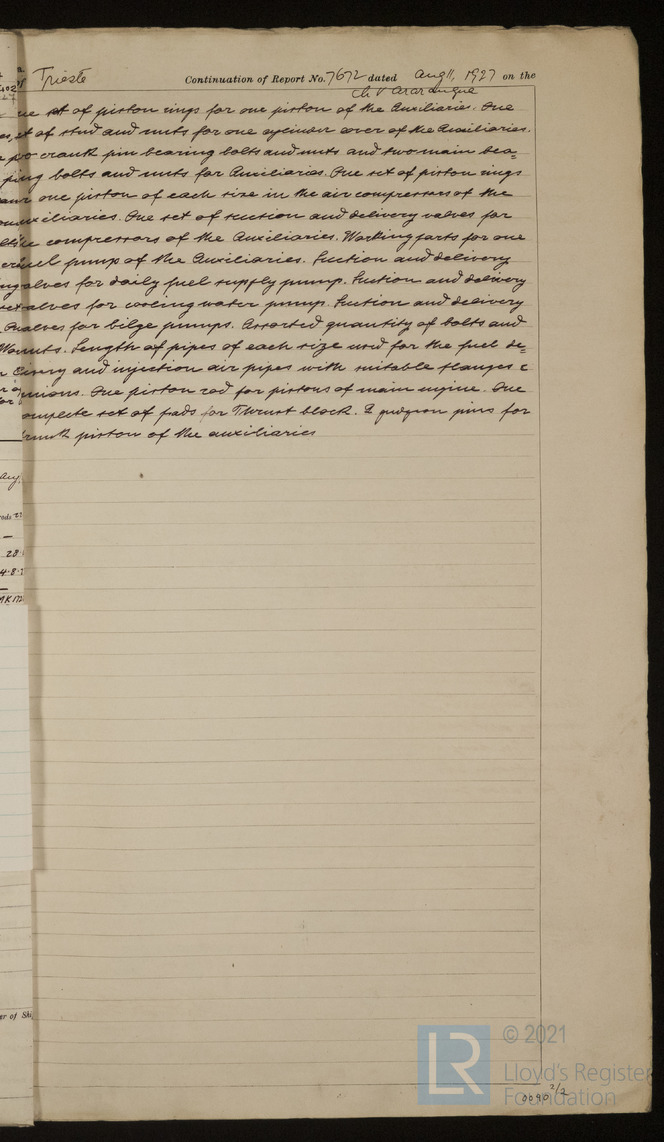 Trieste Continuation of Report No. 7672 dated Aug 11, 1927 on the
ne set of piston rings for one piston of the Auxiliaries. One
set of stud and nuts for one cylinder cover of the Auxiliaries.
crank pin bearing bolts and nuts and two main bea=
ring bolts and nuts for Auxiliaries. One set of piston rings
one piston of each size in the air compressors of the
uxiliaries. One set of suction and delivery valves for
compressors of the Auxiliaries. Working parts for one
uel pump of the Auxiliaries. Suction and delivery
alves for daily fuel supply pump. Suction and delivery
alves for cooling water pump. Suction and delivery
valves for bilge pumps. Assorted quantity of bolts and
nuts. Length of pipes of each size used for the fuel de=
livery and injection air pipes with suitable flanges &
unions. One piston rod for pistons of main engine. One
omplete set of pads for Thrust block. 2 gudgeon pins for
trunk piston of the auxiliaries
er of Shi
LR
© 2021
Lloyd's Register
Foundation
0090 2/2